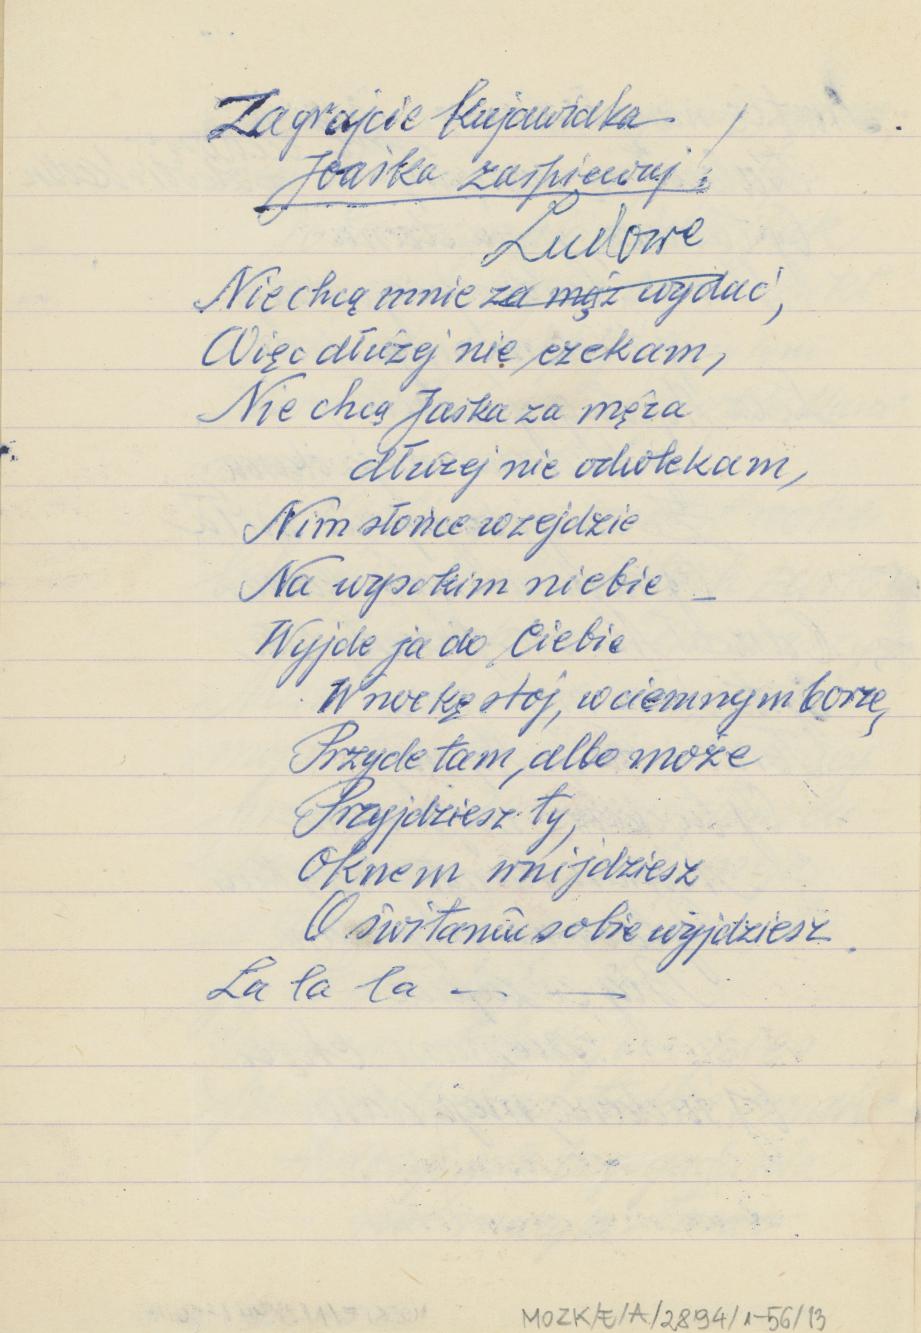 Zagrajcie kujawiaka /
Joaśka zaśpiewaj!
Ludowe
Nie chcą mnie za mąż wydać,
Więc dłużej nie czekam,
Nie chcą Jaśka za męża
dłużej nie odwlekam,
Nim słońce wzejdzie
Na wysokim niebie –
Wyjde ja do Ciebie
W nockę stój, w ciemnym borze,
Przyde tam, albo może
Przyjdziesz ty,
Oknem wnijdziesz
O świtaniu sobie wyjdziesz.
La la la — —
MOZK/E/A/2894/1-56/13